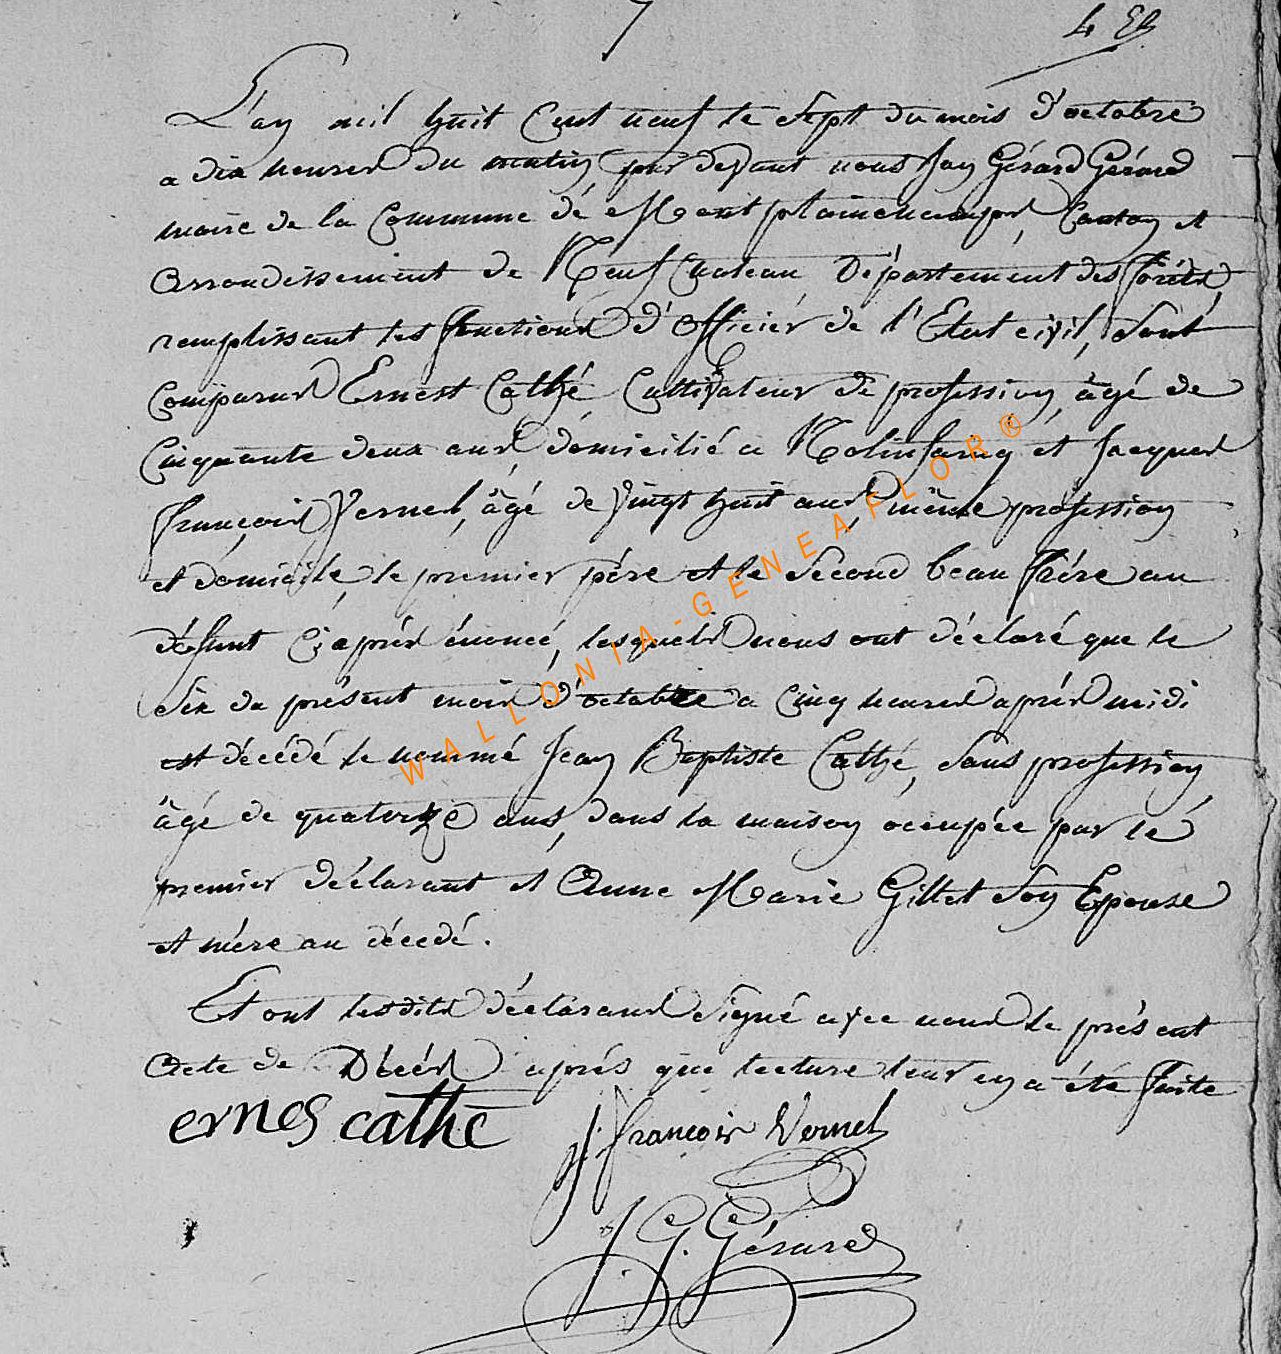 7
4
L'an mil huit Cent neuf le Sept du mois d'octobre
a dix heures du matin par devant nous Jean Gérard Gérard
maire de la Commune de Montplainchamps, Canton et
Arrondissement de Neufchateau Département des forêts,
remplissant les fonctions d'Officier de l'Etat civil, Sont
Comparus Ernest Cathé Cultivateur de profession, âgé de
Cinquante deux ans, domicilié a Molinfaing et Jacques
françois Vernel, âgé de Vingt huit ans, même profession
et domicile, le premier père et le Second beau frére au
défunt Ci après énoncé, lesquels nous ont déclaré que le
Six du présent mois d'octobre a Cinq heures après midi
est décédé le nommé Jean Baptiste Cathé, Sans profession,
âgé de quatorze ans, dans la maison occupée par le
premier déclarant et Anne Marie Gillet Son Epouse
et mére au décedé.
Et ont lesdits déclarans Signé avec nous le présent
Acte de Décés après que lecture leur en a été faite
ernes cathe
J. françois Vernel
J. G. Gérard
WALLONIA-GENEAFLOR®